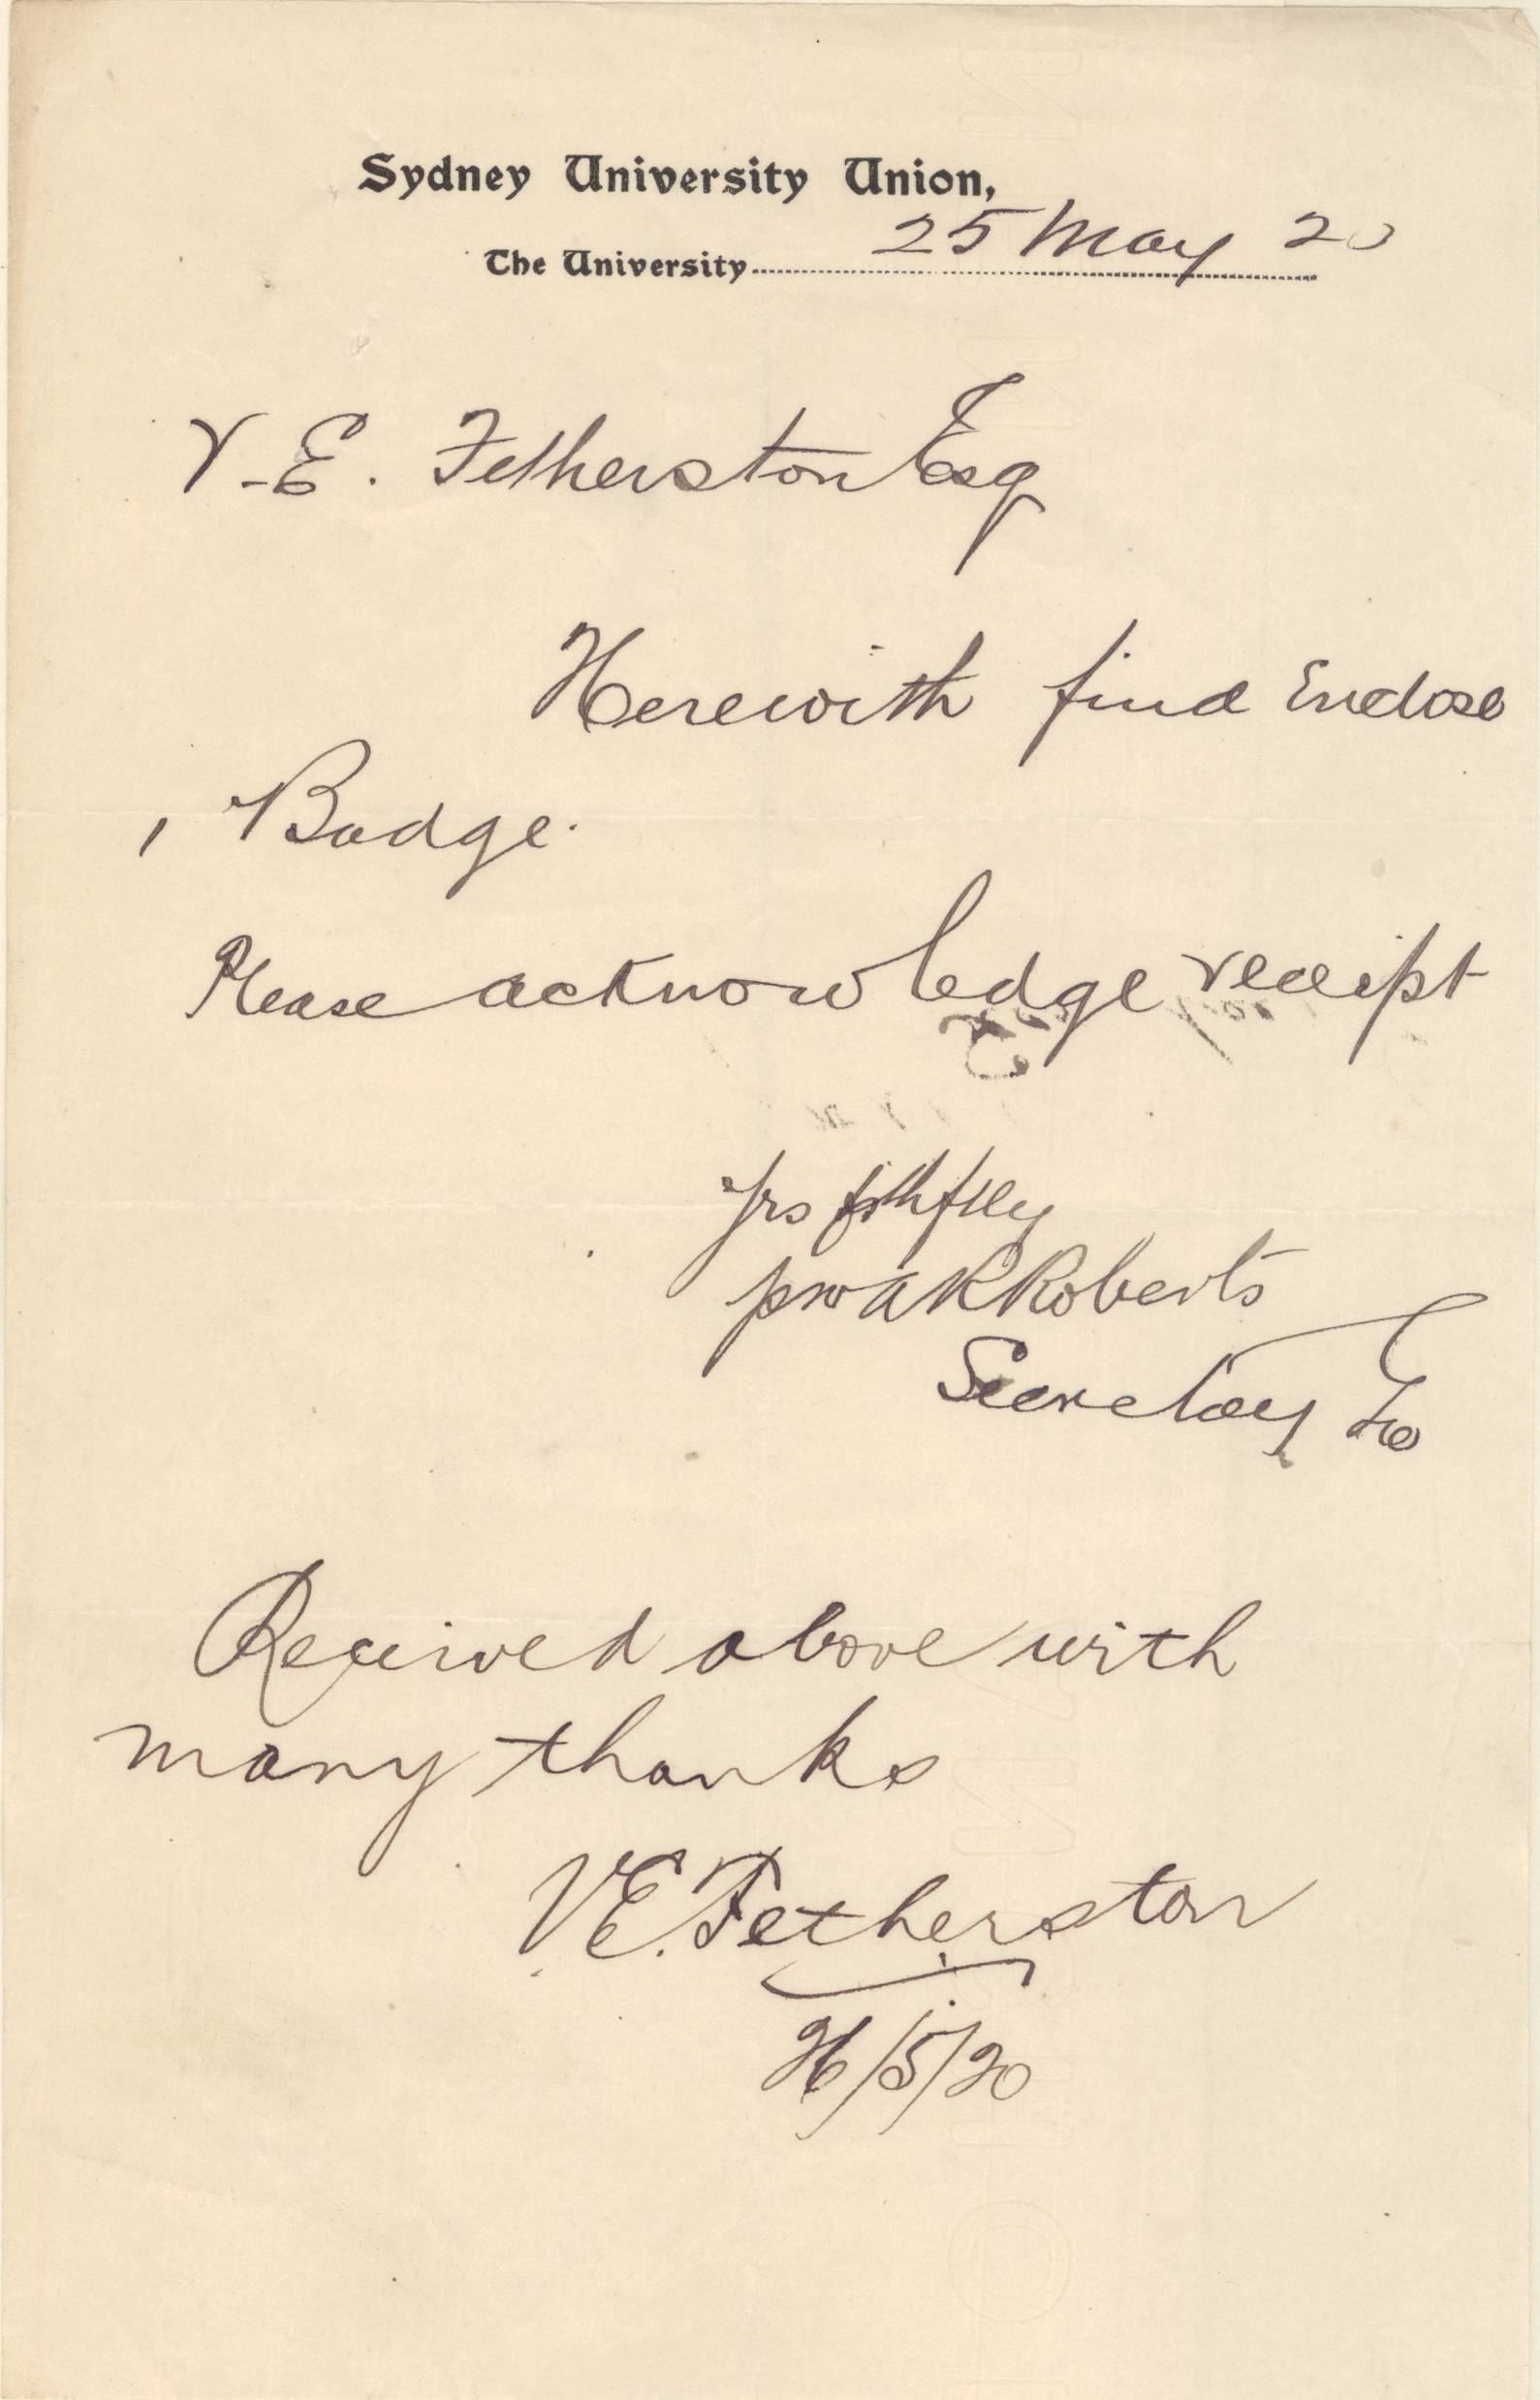 Sydney University Union,
The University 25 May 20
V-E. Fetherston Esq
Herewith find Enclose
1 Badge.
Please acknowledge receipt
Yrs fthflly
pro A K Roberts
Secretary
Received above with
many thanks
V.E. Fetherston
26/5/20